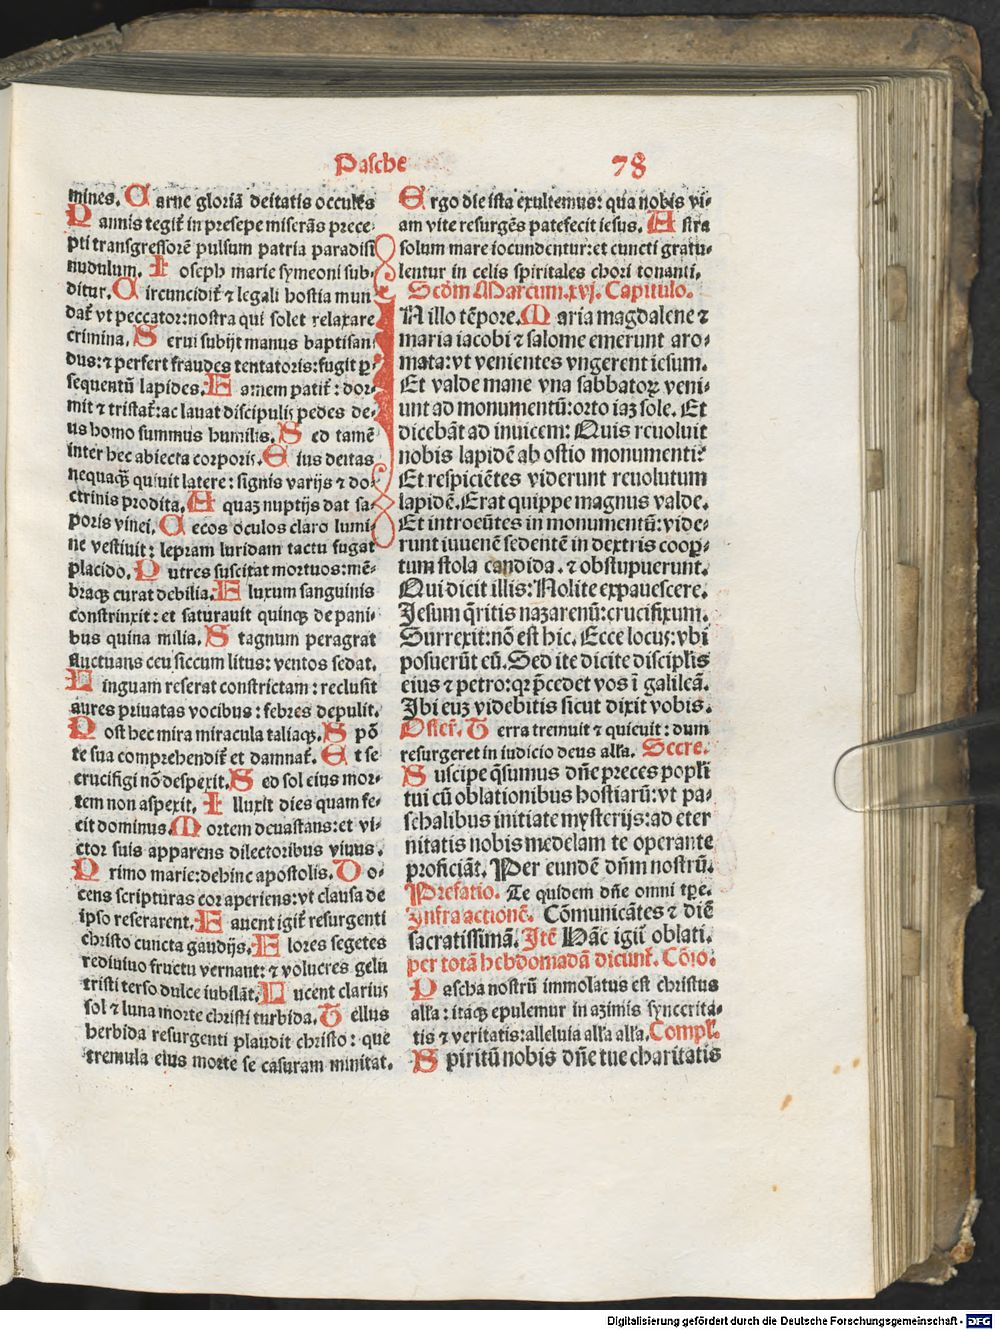 Pasche 78
mines. Carne gloriā deitatis occulēs
Pannis tegit̄ in presepe miserās prece-
pti transgressorē pulsum patria paradisi
nudulum. Ioseph marie symeoni sub-
ditur. Circuncidit̄ ⁊ legali hostia mun
dat̄ vt peccator: nostra qui solet relaxare
crimina. Serui subijt manus baptisan-
dus: ⁊ perfert fraudes tentatoris: fugit ꝑ-
sequentū lapides. Famem patit̄: dor-
mit ⁊ tristat̄: ac lauat discipulis pedes de-
us homo summus humilis. Sed tamē
inter hec abiecta corporis. Eius deitas
nequaqᷓ quiuit latere: signis varijs ⁊ do-
ctrinis prodita. Aquaꝫ nuptijs dat sa-
poris vinei. Cecos oculos claro lumi-
ne vestiuit: lepram luridam tactu fugat
placido. Putres suscitat mortuos: mē-
braqꝫ curat debilia. Fluxum sanguinis
constrinxit: et saturauit quinqꝫ de pani-
bus quina milia. Stagnum peragrat
fluctuans ceu siccum litus: ventos sedat.
Linguam reserat constrictam: reclusit
aures priuatas vocibus: febres depulit.
Post hec mira miracula taliaqꝫ. Spō
te sua comprehendit̄ et damnat̄. Et se
crucifigi nō despexit. Sed sol eius mor-
tem non aspexit. Illuxit dies quam fe-
cit dominus. Mortem deuastans: et vi-
ctor suis apparens dilectoribus viuus.
Primo marie: dehinc apostolis. Do-
cens scripturas cor aperiens: vt clausa de
ipso reserarent. Fauent igit̄ resurgenti
christo cuncta gaudijs. Flores segetes
rediuiuo fructu vernant: ⁊ volucres gelu
tristi terso dulce iubilāt. Lucent clarius
sol ⁊ luna morte christi turbida. Tellus
herbida resurgenti plaudit christo: que
tremula eius morte se casuram minitat.
Ergo die ista exultemus: qua nobis vi-
am vite resurgēs patefecit iesus. Astra
solum mare iocundentur: et cuncti gratu-
lentur in celis spiritales chori tonanti.
Scd̄m Marcum. xvj. Capitulo.
IN illo tēpore. Maria magdalene ⁊
maria iacobi ⁊ salome emerunt aro-
mata: vt venientes vngerent iesum.
Et valde mane vna sabbatoꝝ veni-
unt ad monumentū: orto iaꝫ sole. Et
dicebāt ad inuicem: Quis reuoluit
nobis lapidē ab ostio monumenti?
Et respiciētes viderunt reuolutum
lapidē. Erat quippe magnus valde.
Et introeūtes in monumentū: vide-
runt iuuenē sedentē in dextris cooꝑ-
tum stola candida. ⁊ obstupuerunt.
Qui dicit illis: Nolite expauescere.
Jesum q̄ritis nazarenū: crucifixum.
Surrexit: nō est hic. Ecce locus: vbi
posuerūt eū. Sed ite dicite discipl̓is
eius ⁊ petro: qꝛ p̄cedet vos ī galileā.
Ibi euꝫ videbitis sicut dixit vobis.
Offer̄. Terra tremuit ⁊ quieuit: dum
resurgeret in iudicio deus all̓a. Secre.
Suscipe q̄sumus dn̄e preces popl̓i
tui cū oblationibus hostiarū: vt pa-
schalibus initiate mysterijs: ad eter
nitatis nobis medelam te operante
proficiāt. Per eundē dn̄m nostrū.
Prefatio. Te quidem dn̄e omni tꝑe.
Infra actionē. Cōmunicātes ⁊ diē
sacratissimā. Itē Hāc igit̄ oblati.
per totā hebdomadā dicunt̄. Cōio.
Pascha nostrū immolatus est christus
all̓a: itaqꝫ epulemur in azimis syncerita-
tis ⁊ veritatis: alleluia all̓a all̓a. Compl̓.
Spiritū nobis dn̄e tue charitatis
Digitalisierung gefördert durch die Deutsche Forschungsgemeinschaft - DFG